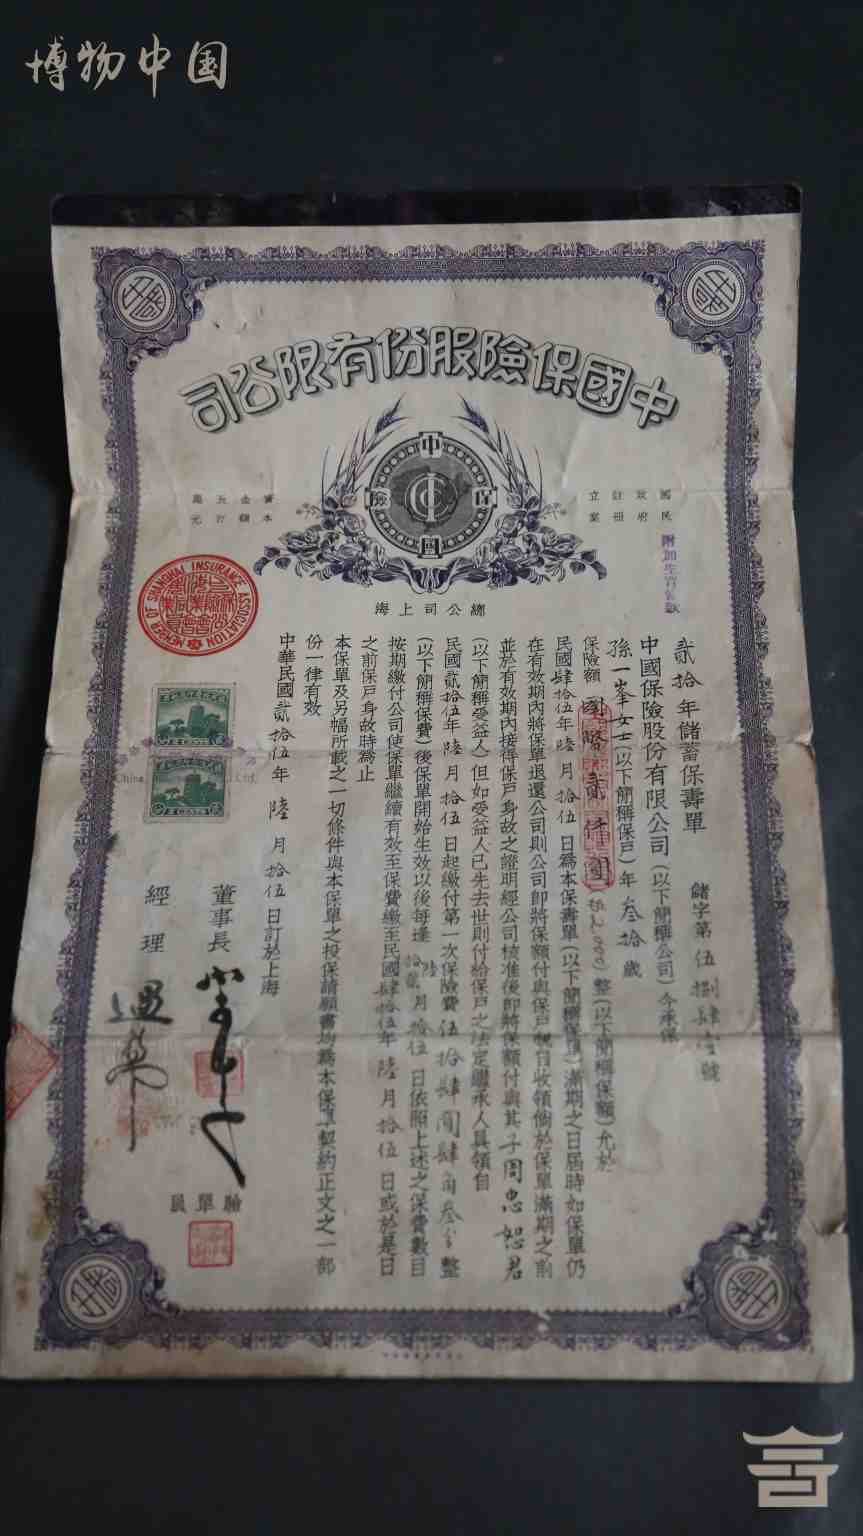 博物中国
中國保險股份有限公司
中國保險
國民政府註冊立案
實本金額五百萬元
附加生育條款
總公司上海
MEMBER OF SHANGHAI INSURANCE ASSOCIATION
貳拾年儲蓄保壽單
儲字第伍捌肆壹號
中國保險股份有限公司(以下簡稱公司)今承保
孫一峯女士(以下簡稱保戶)年叁拾歲
保險額國幣貳仟圓整(以下簡稱保額)允於
民國肆拾伍年陸月拾伍日為本保壽單(以下簡稱保單)滿期之日屆時如保單仍
在有效期內將保單退還公司則公司即將保額付與保戶親自收領倘於保單滿期之前
並於有效期內接得保戶身故之證明經公司核准後即將保額付與其子周忠恕君
(以下簡稱受益人)但如受益人已先去世則付給保戶之法定繼承人具領自
民國貳拾伍年陸月拾伍日起繳付第一次保險費伍拾肆圓肆角叁分整
(以下簡稱保費)後保單開始生效以後每逢陸拾貳月拾伍日依照上述之保費數目
按期繳付公司使保單繼續有效至保費繳至民國肆拾伍年陸月拾伍日或於是日
之前保戶身故時為止
本保單及另幅所載之一切條件與本保單之投保請願書均為本保單契約正文之一部
份一律有效
中華民國貳拾伍年陸月拾伍日訂於上海
董事長
經理
驗單員